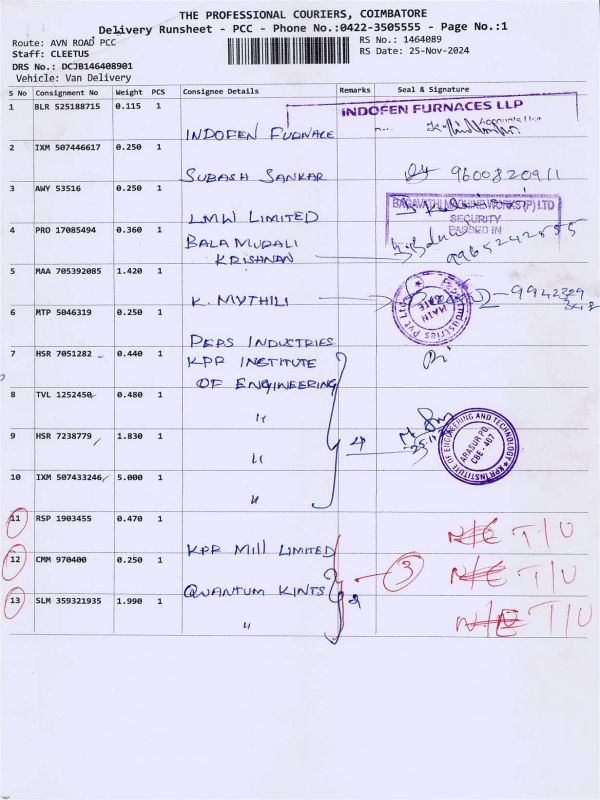 THE PROFESSIONAL COURIERS, COIMBATORE
Delivery Runsheet - PCC - Phone No.:0422-3505555 - Page No.:1
Route: AVN ROAD PCC
RS No.: 1464089
Staff: CLEETUS
RS Date: 25-Nov-2024
DRS No.: DCJB146408901
Vehicle: Van Delivery
S No Consignment No Weight PCS Consignee Details Remarks Seal & Signature
1 BLR 525188715 0.115 1
INDOFEN FURNACES LLP
INDOFEN FURNACE
2 IXM 507446617 0.250 1
SUBASH SANKAR
9600820911
3 AWY 53516 0.250 1
LMW LIMITED
SECURITY
PASSED IN
4 PRO 17085494 0.360 1
BALA MURALI
KRISHNAN
5 MAA 705392085 1.420 1
K. MYTHILI
MAIN GATE
6 MTP 5046319 0.250 1
PEPS INDUSTRIES
7 HSR 7051282 0.440 1
KPR INSTITUTE
OF ENGINEERING
8 TVL 1252450 0.480 1
"
9 HSR 7238779 1.830 1
"
4
KPR INSTITUTE OF ENGINEERING AND TECHNOLOGY
ARASUR PO.
CBE - 407
10 IXM 507433246 5.000 1
"
11 RSP 1903455 0.470 1
KPR Mill LIMITED
N/E T/U
12 CMM 970400 0.250 1
QUANTUM KINTS
3
N/E T/U
13 SLM 359321935 1.990 1
"
2
N/E T/U